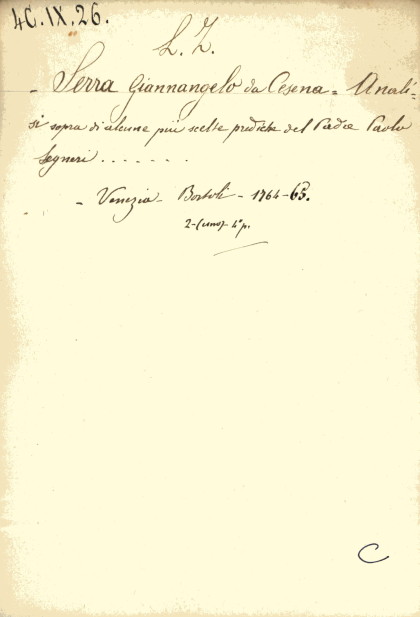 4C.IX.26.
L. Z.
- Serra Giannangelo da Cesena = Anali-
si sopra di alcune più scelte prediche del Padre Paolo
Segneri . . . . . . .
- Venezia - Bortoli - 1764-65.
2-(uno)- 4° p.
C